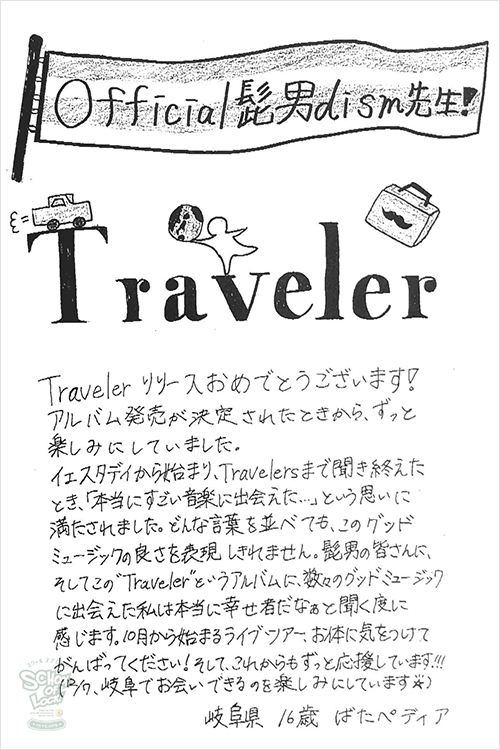 Official髭男dism先生!
Traveler
Traveler リリースおめでとうございます!
アルバム発売が決定されたときから、ずっと
楽しみにしていました。
イエスタデイから始まり、Travelersまで聞き終えた
とき、「本当にすごい音楽に出会えた…」という思いに
満たされました。どんな言葉を並べても、このグッド
ミュージックの良さを表現しきれません。髭男の皆さんに、
そしてこの"Traveler"というアルバムに、数々のグッドミュージック
に出会えた私は本当に幸せ者だなぁと聞く度に
感じます。10月から始まるライブツアー、お体に気をつけて
がんばってください!そして、これからもずっと応援しています!!!
岐阜でお会いできるのを楽しみにしています☆)
岐阜県 16歳 ばたぺディア
SCHOOL OF LOCK!